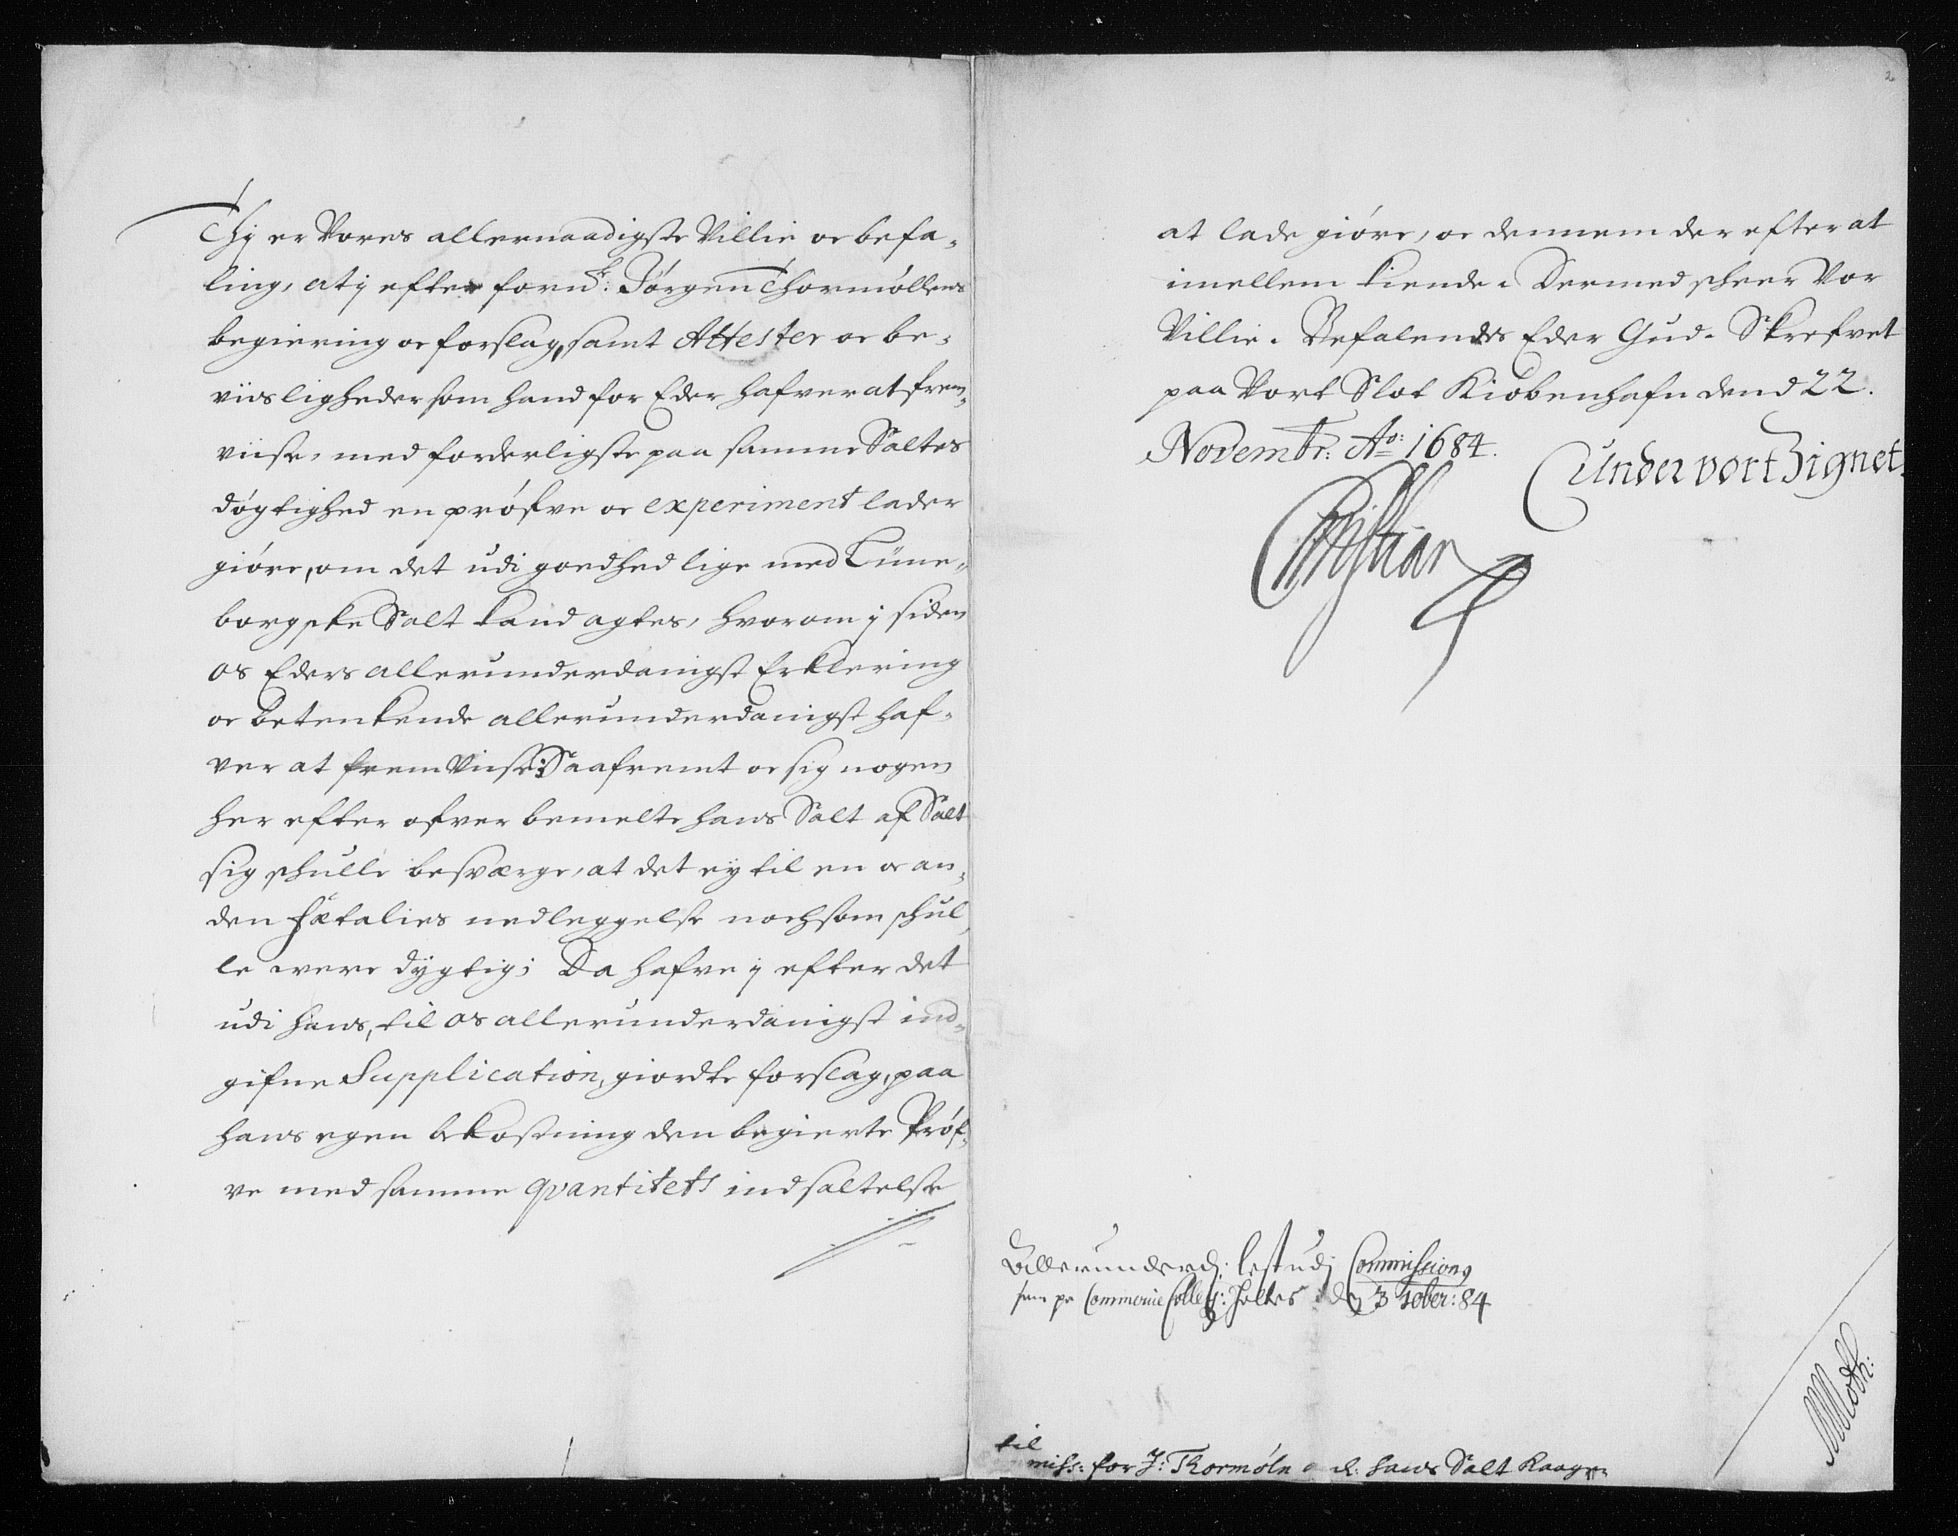 Thj er Vores allernaadigste Villie oc befa-
ling, at j efter fornd: Jørgen Thormøllens
begiering oc forslag, samt Attester oc be-
viisligheder som hand for Eder hafver at frem-
viise, med forderligste paa samme Saltes
døgtighed en prøfve oc experiment lader
giøre, om det udi goedhed lige med Lüne-
borgske Salt kand agtes, hvorom j siden
os Eders allerunderdanigst Erklering
oc betenkende allerunderdanigst haf-
ver at fremviise; Saafremt oc sig nogen
her efter ofver bemelte hans Salt af Salt
sig schulle besværge, at det ey til en oc an-
den fætalies nedleggelse nochsom schul-
le were dygtig; Da hafve j efter det
udi hans, til os allerunderdanigst ind-
gifne Supplication, giordte forslag, paa
hans egen bekostning den begierte Prøf-
ve med samme qvantitets indsaltelse
at lade giøre, oc dennem der efter at
imellem kiende. Dermed scheer Vor
Villie. Befalendes Eder Gud. Skrefvet
paa Vort Slot Kiøbenhafn dend 22.
Novembr: Ao: 1684.
Under vort Zignet.
Christian
Allerunderd: lest udj Commission
som pa Commercie Colleg: holtes d 3 Xber: 84
MMoth:
til
miss: for J: Thormøln hans Salt Kaagen